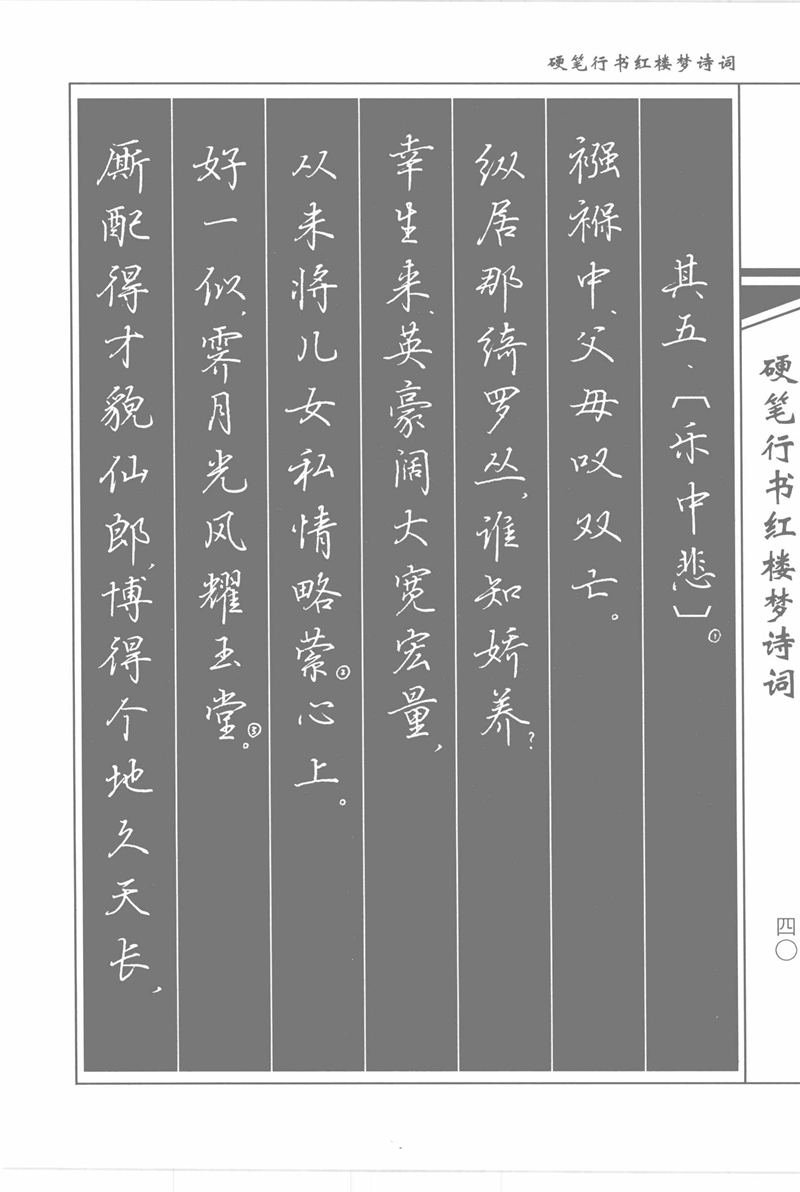 硬笔行书红楼梦诗词
其五·〔乐中悲〕①
襁褓中、父母叹双亡。
纵居那绮罗丛,谁知娇养?
幸生来、英豪阔大宽宏量,
从未将儿女私情略萦②心上。
好一似,霁月光风耀玉堂③。
厮配得才貌仙郎,博得个地久天长,
硬笔行书红楼梦诗词
四〇